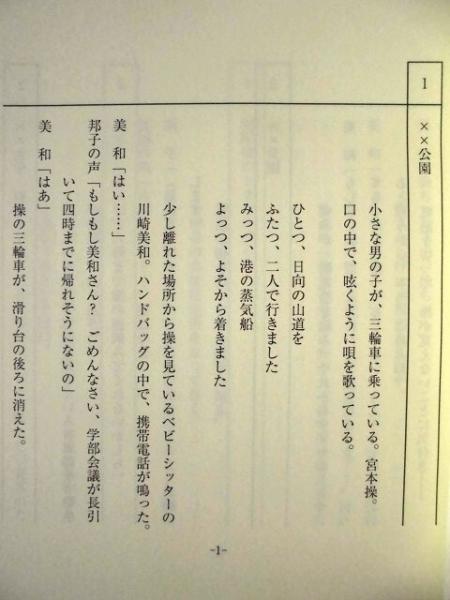 1
××公園
小さな男の子が、三輪車に乗っている。宮本操。
口の中で、呟くように唄を歌っている。
ひとつ、日向の山道を
ふたつ、二人で行きました
みっつ、港の蒸気船
よっつ、よそから着きました
少し離れた場所から操を見ているベビーシッターの
川崎美和。ハンドバッグの中で、携帯電話が鳴った。
美　和「はい……」
邦子の声「もしもし美和さん？　ごめんなさい、学部会議が長引
いて四時までに帰れそうにないの」
美　和「はあ」
操の三輪車が、滑り台の後ろに消えた。
-1-